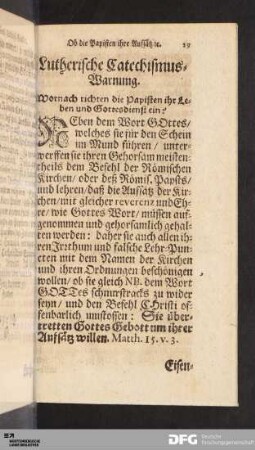 Ob die Papisten ihre Auffsätz ꝛc. 19
Lutherische Catechismus-
Warnung.
Wornach richten die Papisten ihr Le-
ben und Gottesdienst ein?
NEben dem Wort GOttes/
welches sie nur den Schein
im Mund führen/ unter-
werffen sie ihren Gehorsam meisten-
theils dem Befehl der Römischen
Kirchen/ oder deß Römis. Papsts/
und lehren/ daß die Aufsätz der Kir-
chen/ mit gleicher reverenz und Eh-
re/ wie Gottes Wort/ müssen auf-
genommen und gehorsamlich gehal-
ten werden: daher sie auch allen ih-
ren Irrthum und falsche Lehr-Pun-
cten mit dem Namen der Kirchen
und ihren Ordnungen beschönigen
wollen/ ob sie gleich NB. dem Wort
GOTTes schnurstracks zu wider
seyn/ und den Befehl Christi of-
fenbarlich umstossen: Sie über-
tretten Gottes Gebott um ihrer
Auffsätz willen. Matth. 15. v. 3.
Eisen-
DFG Deutsche
Forschungsgemeinschaft